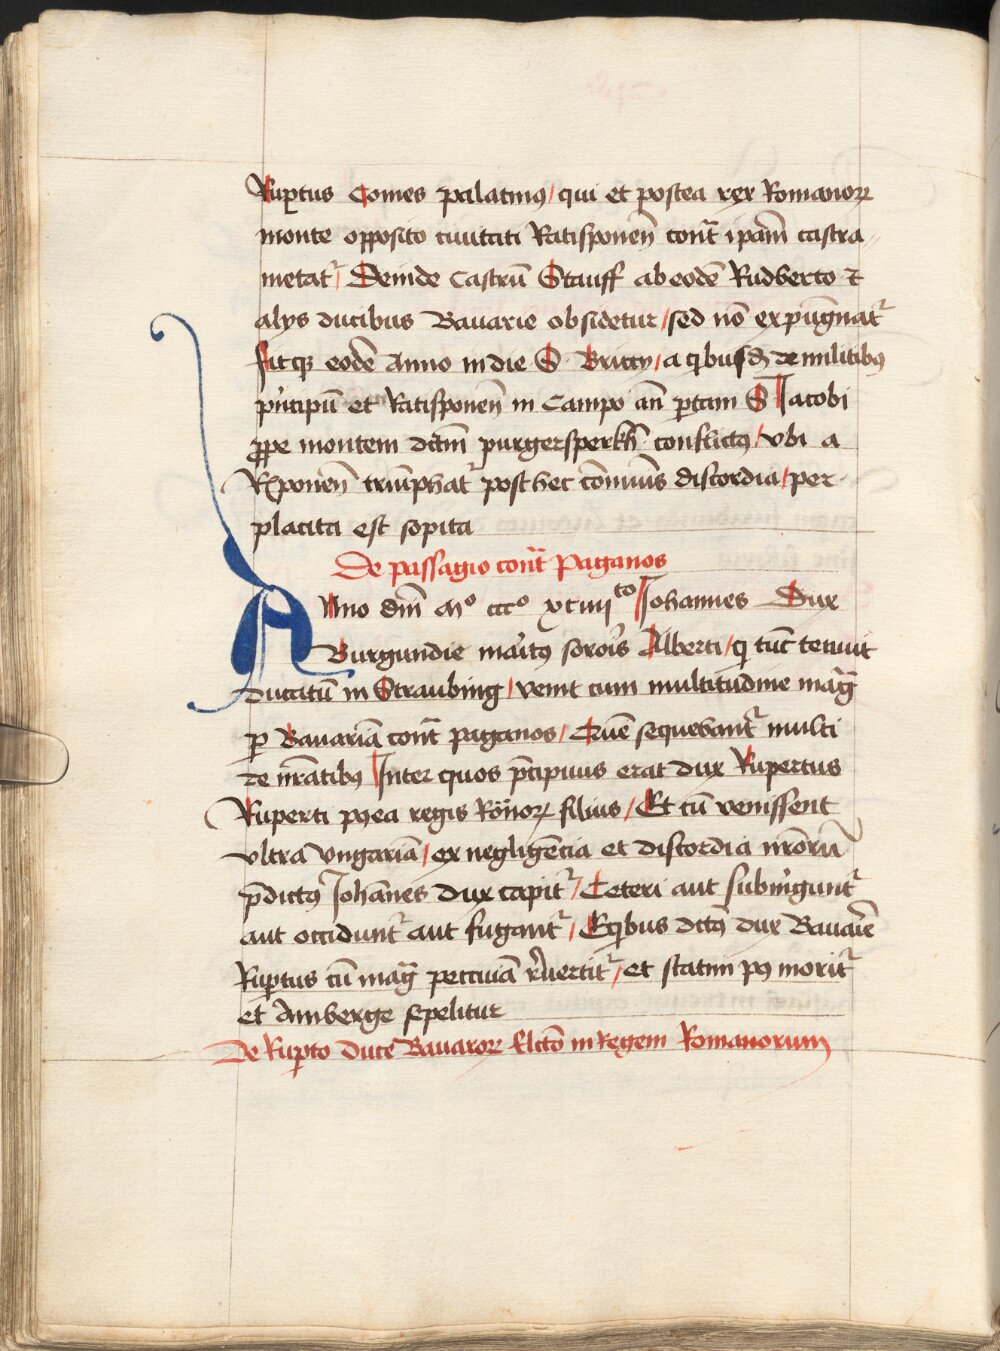 Rup̲tus Comes palatin⁹ / qui et postea rex Romanorꝝ
monte opposito ciuitati Ratisponen̄ cont̄ ip̄am castra
metat᷑ / Deinde Castrū Stauff ab eodē Rudberto ⁊
alys ducibus Bauarie obsidetur / sed nō expūgnat᷑
fitqꝫ eodē Anno in die S Briccy / a qͥbusdꝫ de militibꝰ
pͥncipū et Ratisponen̄ in Campo an̄ ꝑtam S Jacobi
ꝓpe montem dc̄m purgersperkh̄ conflictꝰ / vbi a
Rp̄onen̄ triūphat᷑ post hec cōmuīs discordia / per
placita est sopita
De passagio cont̄ Paganos
Anno dn̄i Mº cccº xciiiiᵗᵒ Johannes Dux
Burgundie marit⁹ sororis Alberti / qͥ tūc tenuit
ducatū in Straubing / venit cum multitudine magͣ
ꝑ Bauariā cont̄ paganos / Quē sequebant᷑ multi
de nr̄atibꝰ Inter quos p̄cipuus erat dux Rupertus
Ruperti p⁹ea regis Rōnorꝝ filius / Et cū venissent
vltra vngariā / ex negligēcia et discordia nr̄orū
p̄dict⁹ Johānes dux capit᷑ / Ceteri aut submgunt᷑
aut occidunt᷑ aut fugant᷑ / Ex qͥbus dc̄⁹ dux Bauarie
Rup̲tus cū magͣ pecuniā reuertit᷑ / et statim p⁹ morit᷑
et Amberge sepelitur
De Rup̲to duce Bauarorꝝ Elc̄to in Regem Romanorum